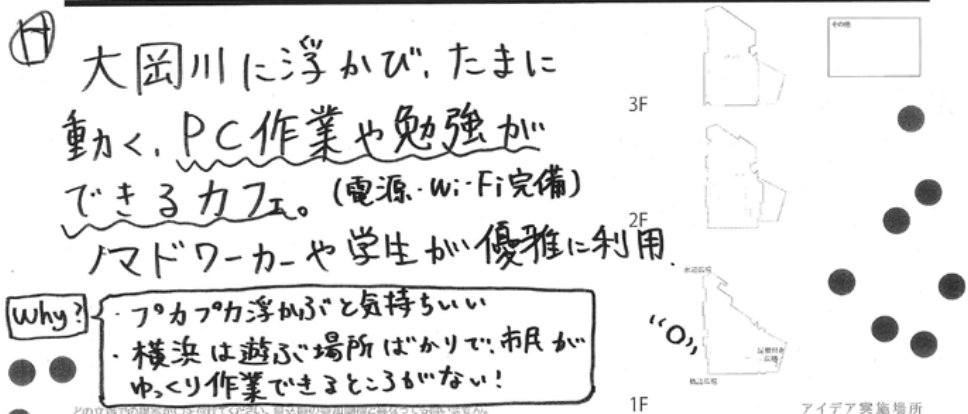 H
大岡川に浮かび、たまに
動く、PC作業や勉強が
できるカフェ。(電源・Wi-Fi完備)
ノマドワーカーや学生が優雅に利用.
Why?
・プカプカ浮かぶと気持ちいい
・横浜は遊ぶ場所ばかりで、市民が
ゆっくり作業できるところがない!
その他
3F
2F
水辺広場
"O"
屋根付き
広場
1F
アイデア実施場所